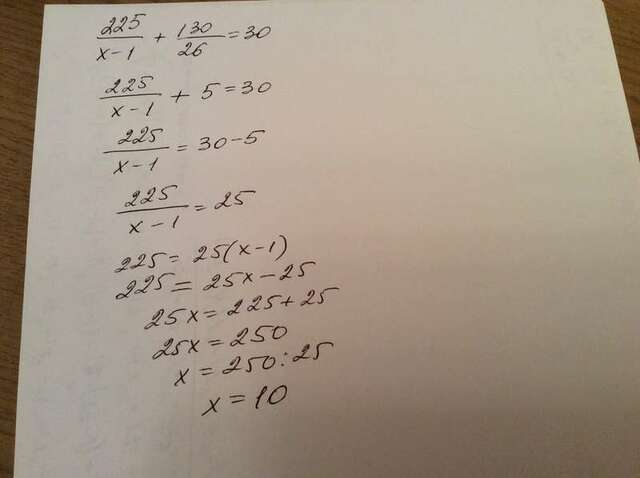 225/x-1 + 130/26 = 30
225/x-1 + 5 = 30
225/x-1 = 30-5
225/x-1 = 25
225 = 25(x-1)
225 = 25x-25
25x = 225+25
25x = 250
x = 250:25
x = 10